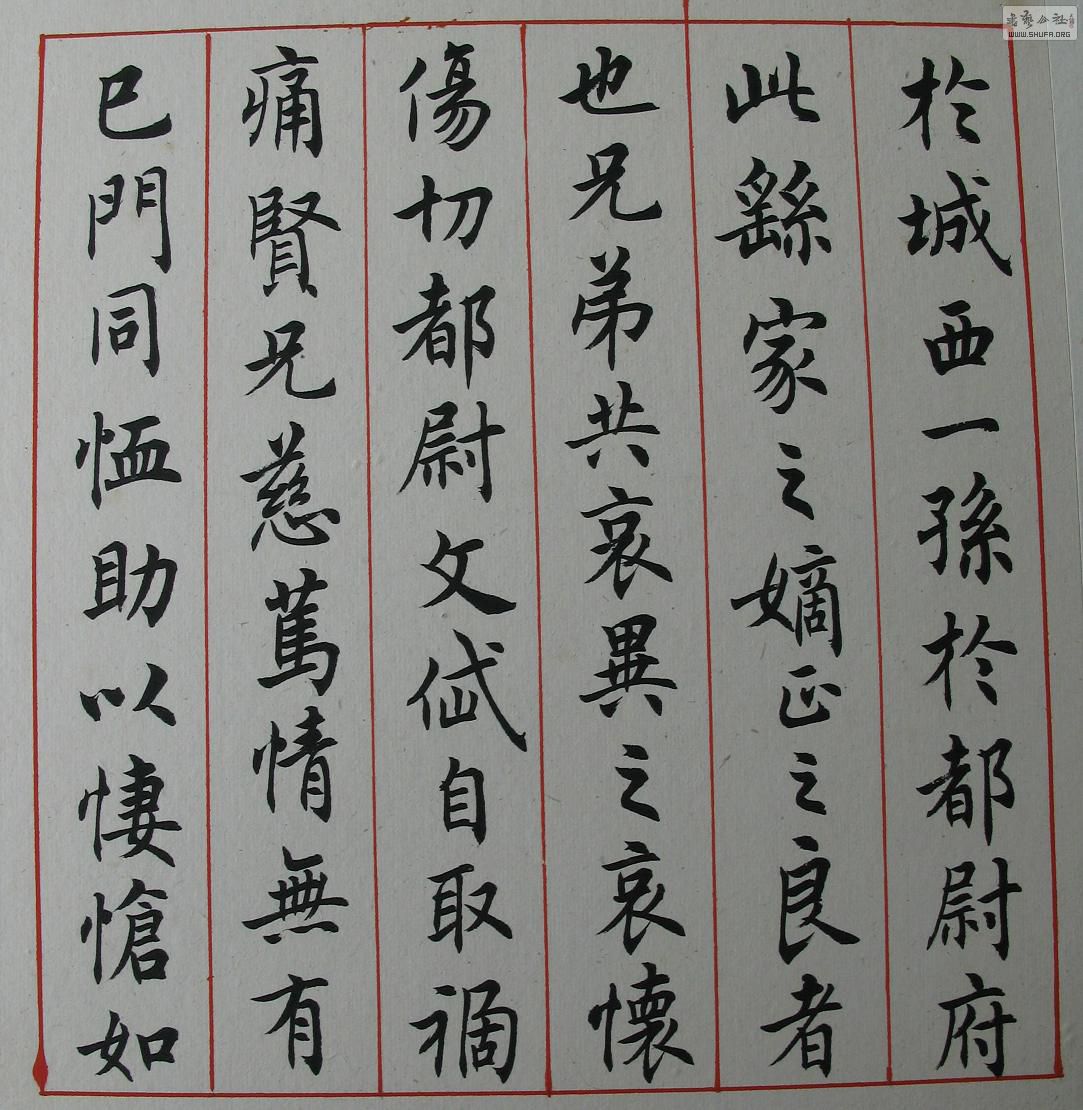 於城西一孫於都尉府
此繇家之嫡正之良者
也兄弟共哀異之哀懷
傷切都尉文岱自取禍
痛賢兄慈篤情無有
已門同恤助以悽愴如
WWW.SHUFA.ORG